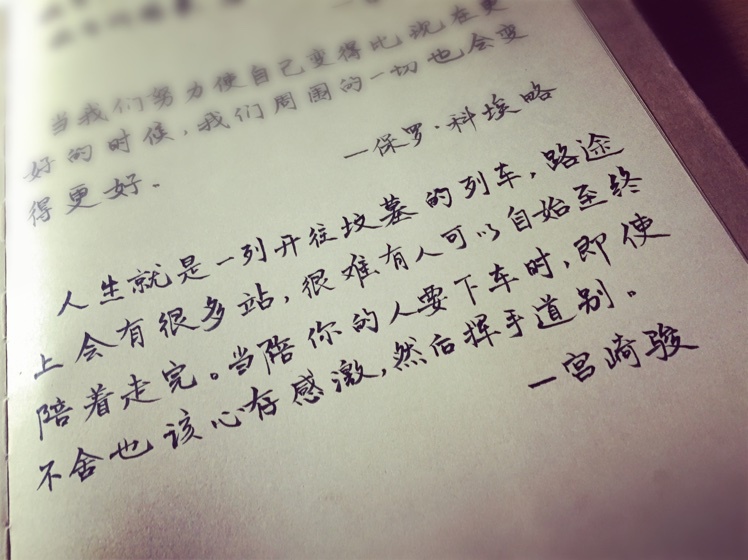 当我们努力使自己变得比现在更
好的时候,我们周围的一切也会变
得更好.
—保罗·科埃略
人生就是一列开往坟墓的列车,路途
上会有很多站,很难有人可以自始至终
陪着走完。当陪你的人要下车时,即使
不舍也该心存感激,然后挥手道别。
—宫崎骏